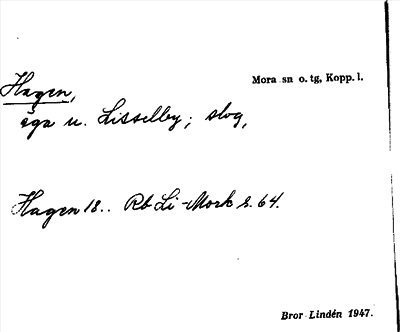 Mora sn o. tg, Kopp. l.
Hagen,
äga u. Lisselby; skog,
Hagen 18.. Rb Li-Mork s. 64.
Bror Lindén 1947.